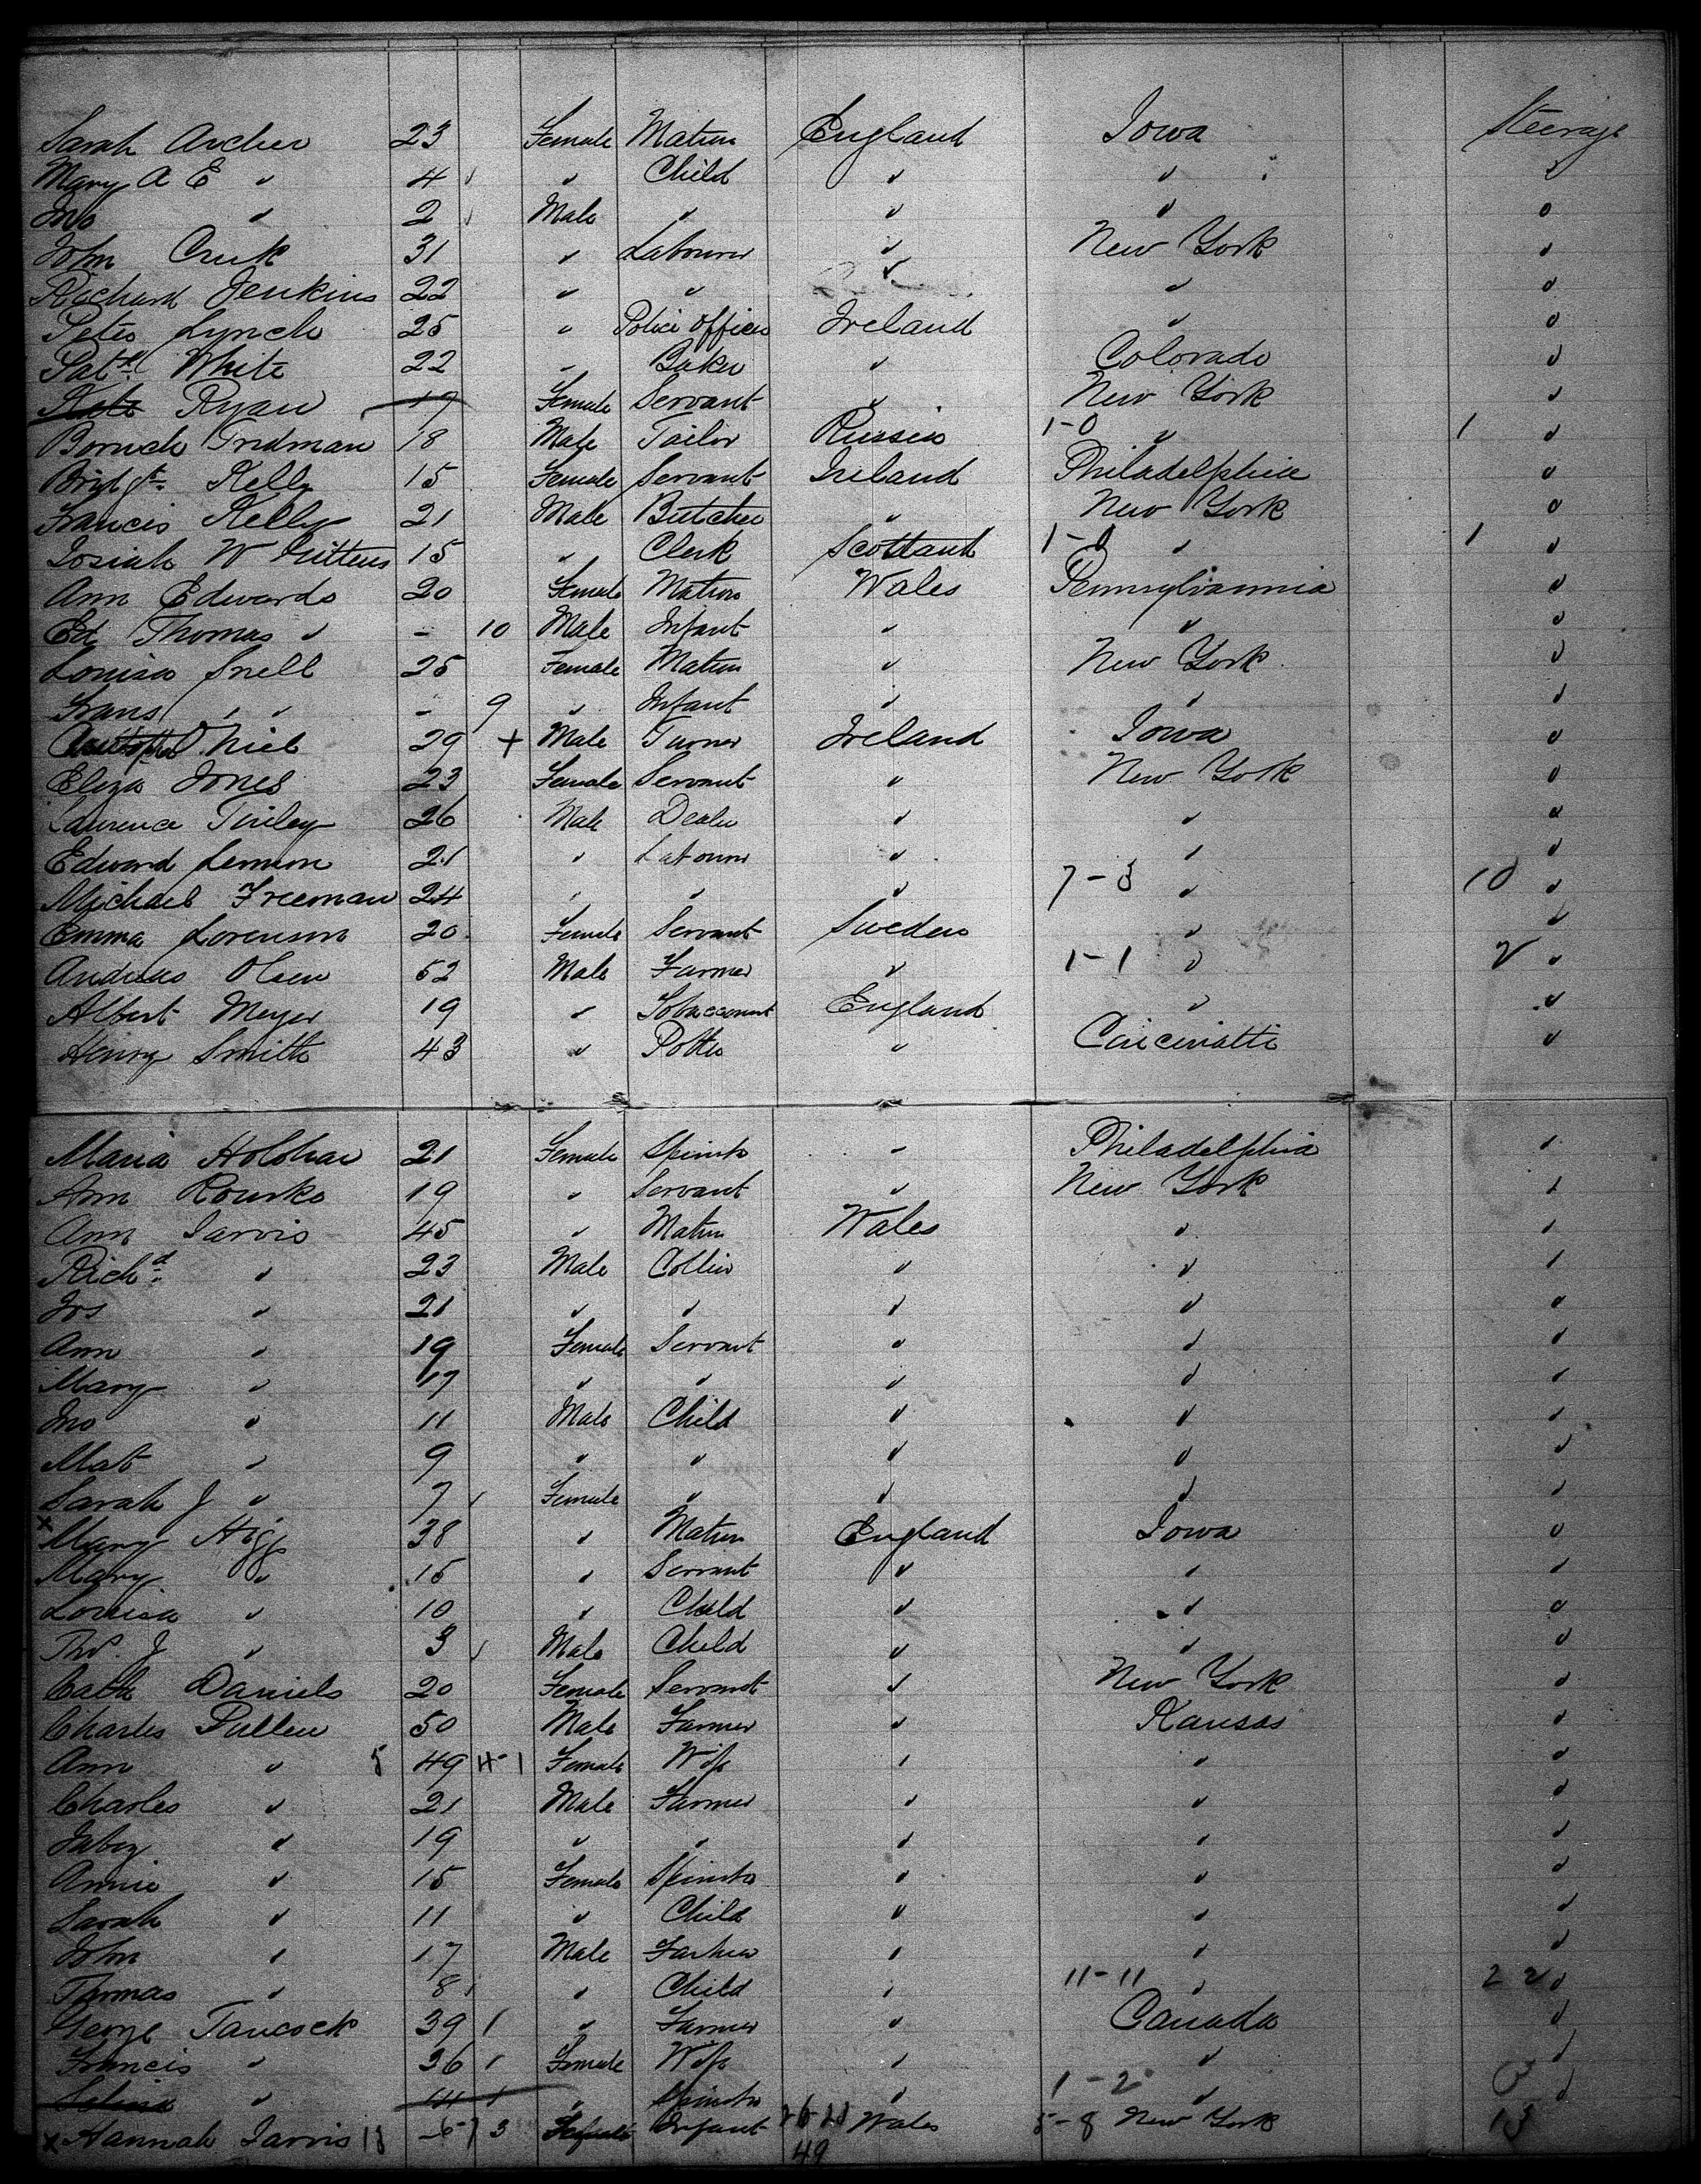 Sarah Archer 23 Female Matron England Iowa Steerage
Mary A E " 4 " Child " " "
Jno " 2 Male " " " "
John Cruk 31 " Labourer " New York "
Richard Jenkins 22 " " " " "
Peter Lynch 25 " Police Officer Ireland " "
Patk White 22 " Baker " Colorado "
Ryan 19 Female Servant " New York "
Boruch Fridman 18 Male Tailor Russia 1-0 " 1 "
Bridgt Kelly 15 Female Servant Ireland Philadelphia "
Francis Kelly 21 Male Butcher " New York "
Josiah W Gittens 15 " Clerk Scotland 1-0 " 1 "
Ann Edwards 20 Female Matron Wales Pennsylvannia "
Ed Thomas " - 10 Male Infant " " "
Louisa Snell 25 Female Matron " New York "
Frans " " - 9 " Infant " " "
O'Niel 29 + Male Turner Ireland Iowa "
Eliza Jones 23 Female Servant " New York "
Laurence Finley 26 Male Dealer " " "
Edward Lennon 21 " Labourer " " "
Michael Freeman 24 " " " 7-3 " 10 "
Emma Lorenson 20 Female Servant Sweden " "
Andreas Olsen 52 Male Farmer " 1-1 " 2 "
Albert Meyer 19 " Tobacconist England " "
Henry Smith 43 " Potter " Cincinatti "
Maria Holohan 21 Female Spinster " Philadelphia "
Ann Rourke 19 " Servant " New York "
Ann Jarvis 45 " Matron Wales " "
Richd " 23 Male Collier " " "
Jos " 21 " " " " "
Ann " 19 Female Servant " " "
Mary " 17 " " " " "
Jno " 11 Male Child " " "
Mat " 9 " " " " "
Sarah J " 7 Female " " " "
x Mary Higgs 38 " Matron England Iowa "
Mary " 15 " Servant " " "
Louisa " 10 " Child " " "
Thos. J " 3 Male Child " " "
Cath Daniels 20 Female Servant " New York "
Charles Pullen 50 Male Farmer " Kansas "
Ann " 5 49 4-1 Female Wife " " "
Charles " 21 Male Farmer " " "
Jabez " 19 " " " " "
Annie " 15 Female Spinster " " "
Sarah " 11 " Child " " "
John " 17 Male Farmer " " "
Thomas " 8 " Child " 11-11 " 22 "
George Tancock 39 1 " Farmer " Canada "
Francis " 36 1 Female Wife " " "
Selina " 14 1 " Spinster " 1-2 " 3 "
x Hannah Jarvis 18 -6-7 3 Infant 26-23 Wales 5-8 New York 13
49